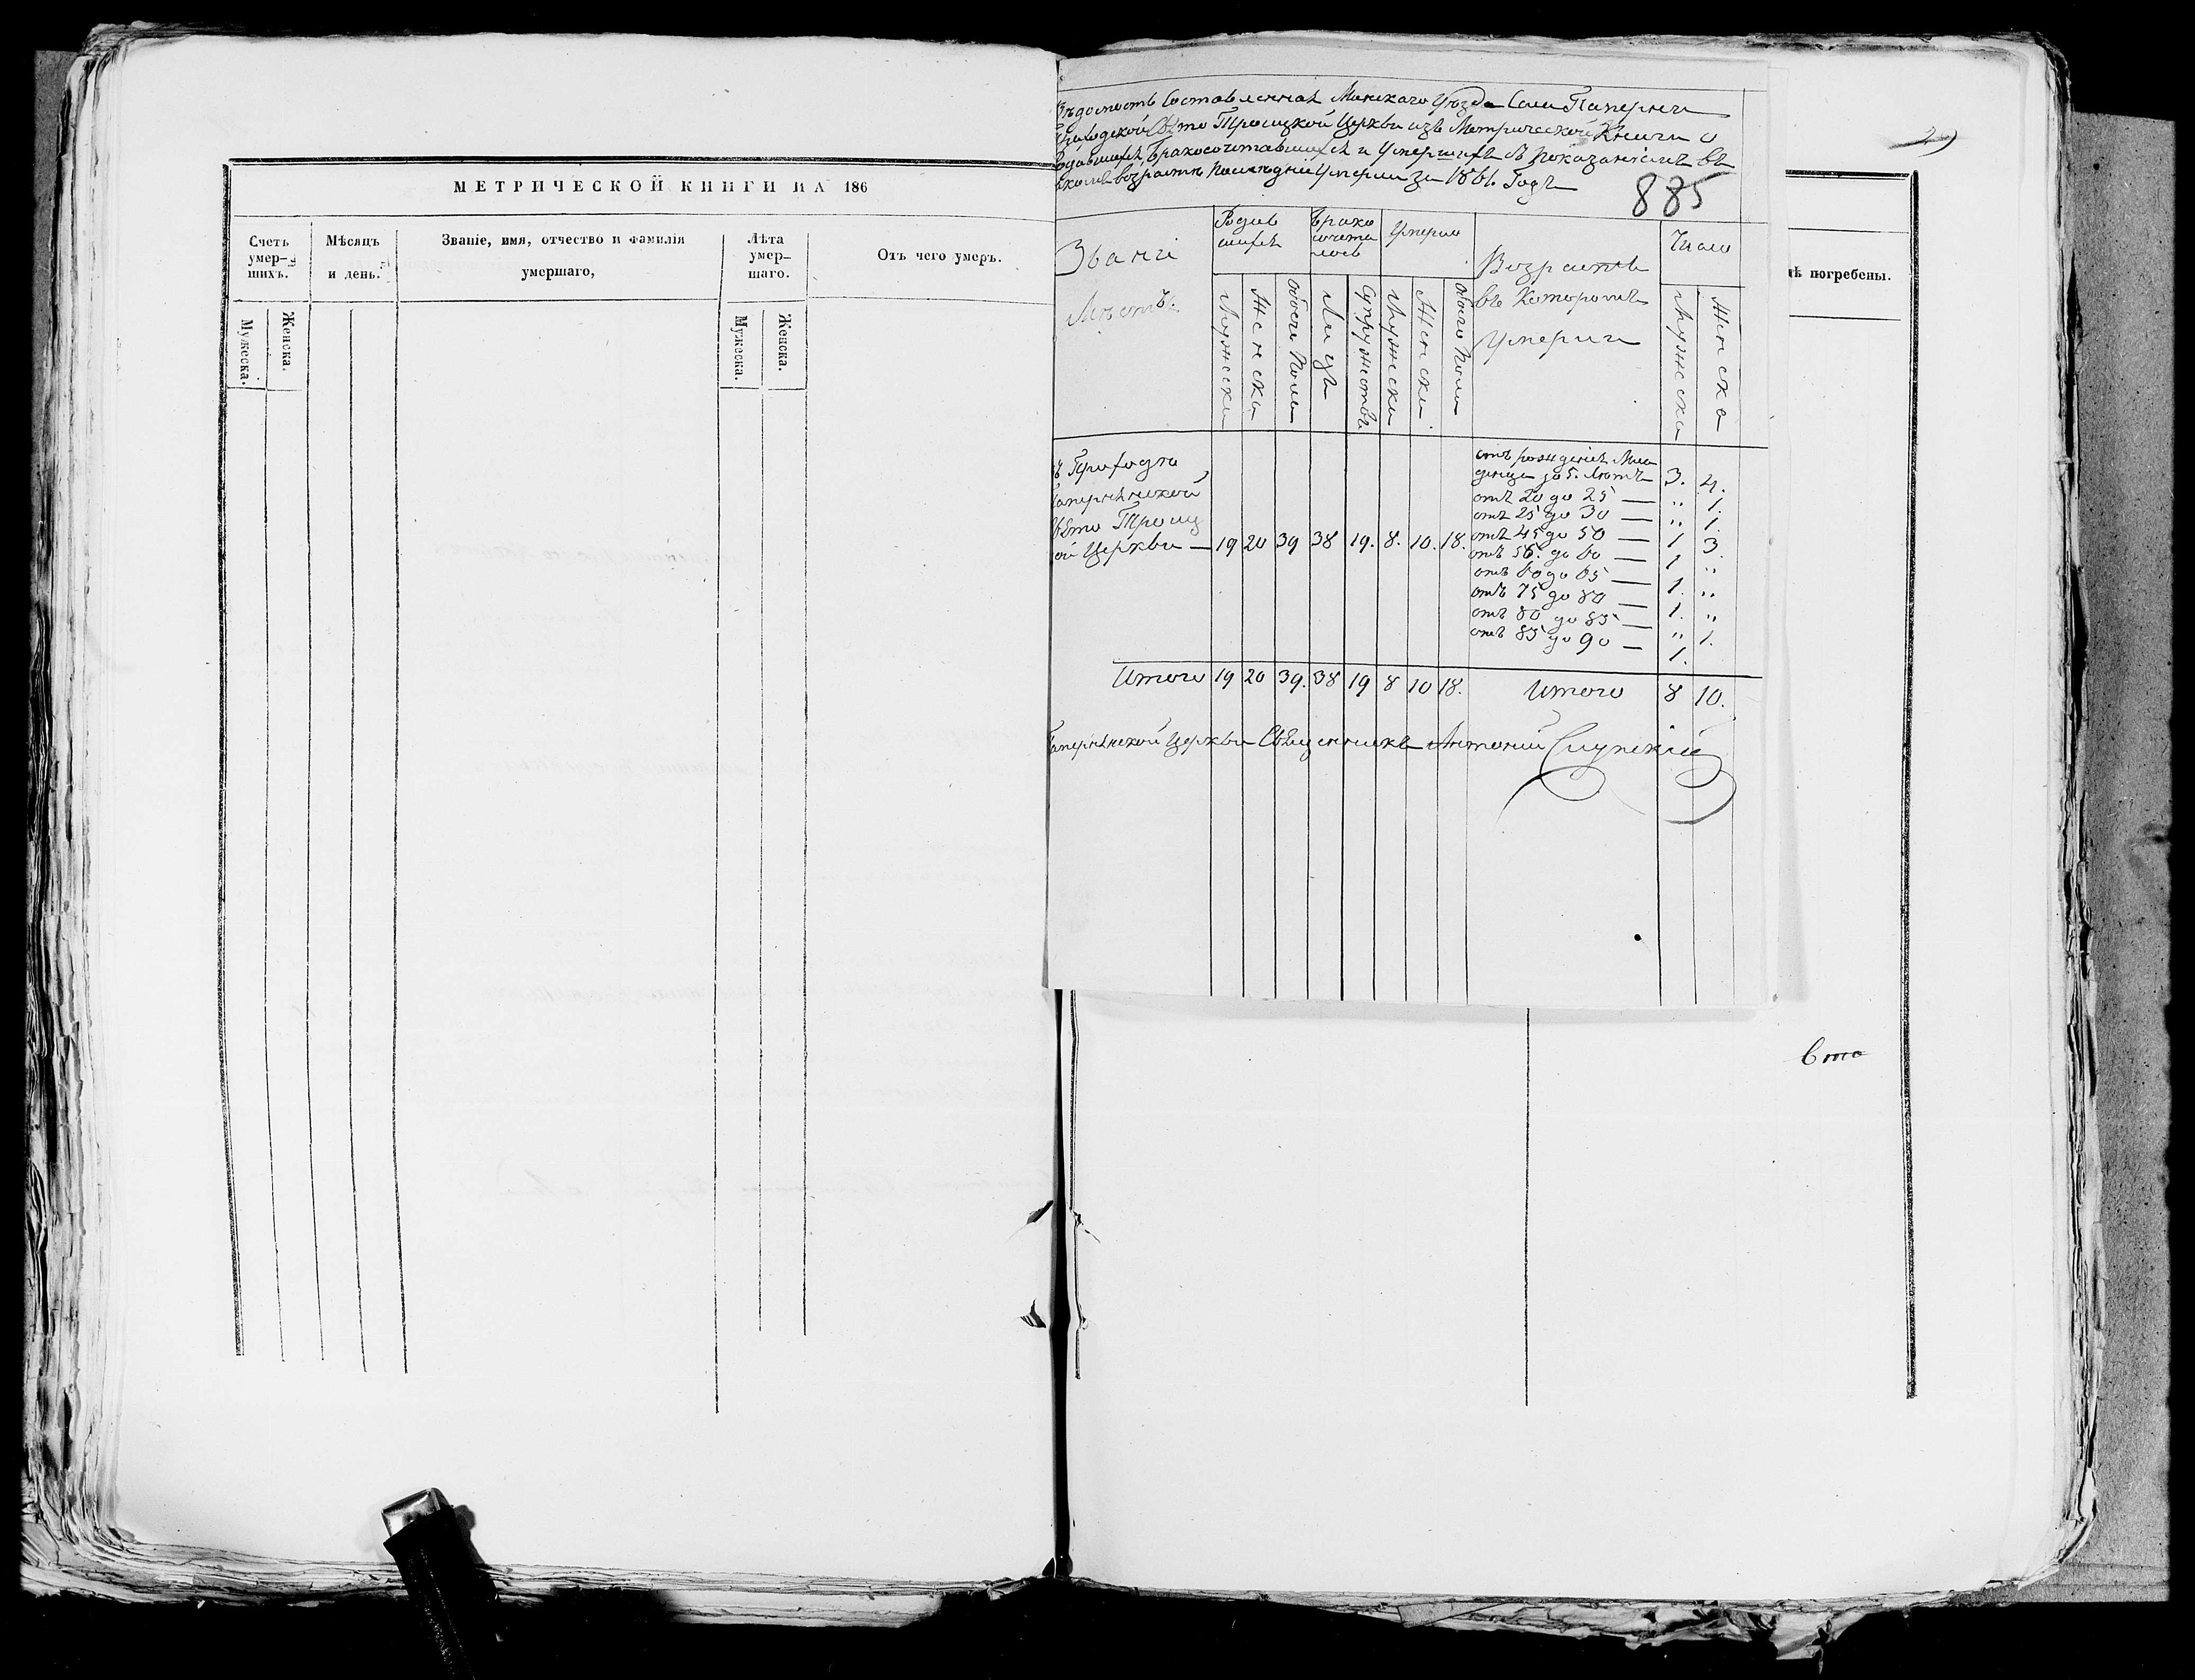 МЕТРИЧЕСКОЙ КНИГИ НА 186
Счетъ умер-шихъ.
Мѣсяцъ и день.
Званіе, имя, отчество и фамилія умершаго,
Лѣта умер-шаго.
Отъ чего умеръ.
Мужеска.
Женска.
Мужеска.
Женска.
Вѣдомость Составленная Минскаго Уѣзда Села Паперни
Приходской Свято Троицкой Церкви изъ Метрической Книги о
Родившихся, Бракосочетавшихся и Умершихъ съ показаніемъ въ
коемъ возрастѣ Последніи Умерли за 1861. Годъ
885
Званіе Мѣстъ.
Родив шихся
Брако сочета лось
Умерло
Возрастъ въ Которомъ Умерли
Число
Мужеска
Женска
Обоего Пола
Лицъ
Супружествъ
Мужеска
Женска
Обоего Пола
Мужеска
Женска
Въ Приходѣ
Папернянской
Свято Троиц
кой Церкви — 19 20 39 38 19. 8. 10. 18.
отъ рожденія Мла
денца до 5. Лѣтъ 3. 4.
отъ 20 до 25 — " 1.
отъ 25 до 30 — " 1.
отъ 45 до 50 — 1 3.
отъ 56. до 60 — 1 "
отъ 60 до 65 — 1. "
отъ 75 до 80 — 1. "
отъ 80 до 85 — " 1.
отъ 85 до 90 — 1.
Итого 19 20 39. 38 19 8 10 18. Итого 8 10.
Папернянской Церкви Священникъ Антоній
ѣ погребены.